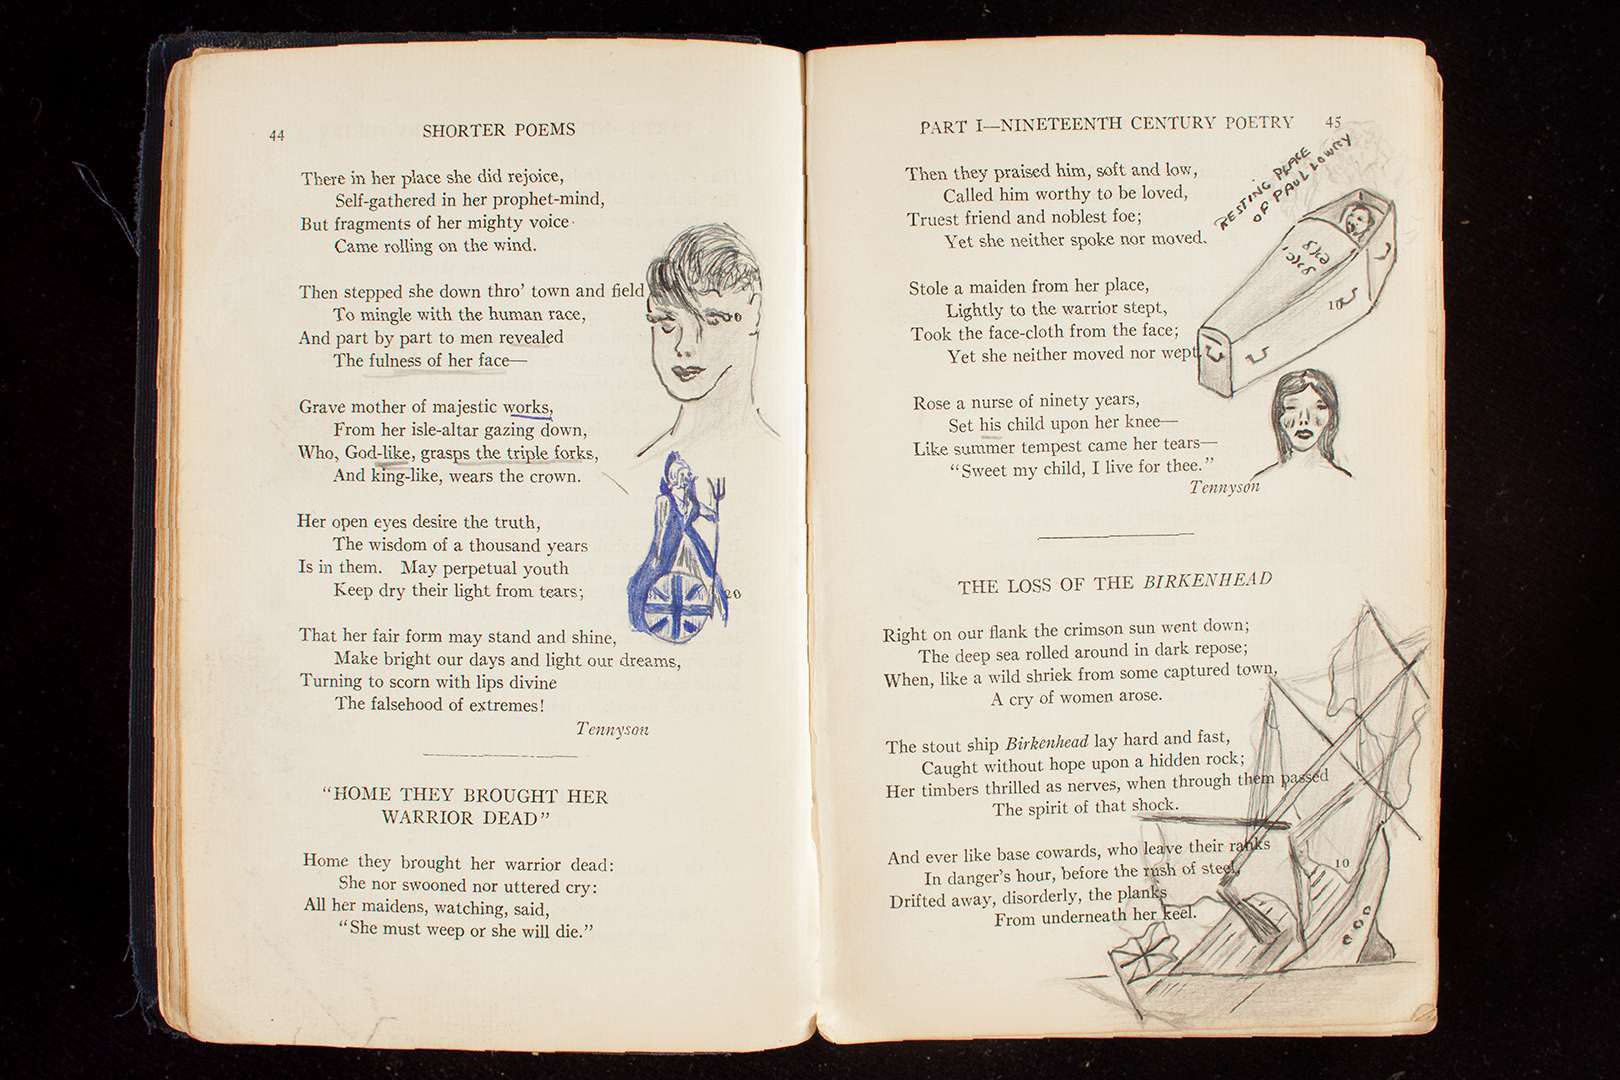 44
SHORTER POEMS
There in her place she did rejoice,
Self-gathered in her prophet-mind,
But fragments of her mighty voice
Came rolling on the wind.
Then stepped she down thro' town and field
To mingle with the human race,
And part by part to men revealed
The fulness of her face—
Grave mother of majestic works,
From her isle-altar gazing down,
Who, God-like, grasps the triple forks,
And king-like, wears the crown.
Her open eyes desire the truth,
The wisdom of a thousand years
Is in them. May perpetual youth
Keep dry their light from tears;
20
That her fair form may stand and shine,
Make bright our days and light our dreams,
Turning to scorn with lips divine
The falsehood of extremes!
Tennyson
"HOME THEY BROUGHT HER
WARRIOR DEAD"
Home they brought her warrior dead:
She nor swooned nor uttered cry:
All her maidens, watching, said,
"She must weep or she will die."
PART I—NINETEENTH CENTURY POETRY
45
RESTING PLACE
OF PAUL LOWRY
Then they praised him, soft and low,
Called him worthy to be loved,
Truest friend and noblest foe;
Yet she neither spoke nor moved.
Stole a maiden from her place,
Lightly to the warrior stept,
10
Took the face-cloth from the face;
Yet she neither moved nor wept.
Rose a nurse of ninety years,
Set his child upon her knee—
Like summer tempest came her tears—
"Sweet my child, I live for thee."
Tennyson
THE LOSS OF THE BIRKENHEAD
Right on our flank the crimson sun went down;
The deep sea rolled around in dark repose;
When, like a wild shriek from some captured town,
A cry of women arose.
The stout ship Birkenhead lay hard and fast,
Caught without hope upon a hidden rock;
Her timbers thrilled as nerves, when through them passed
The spirit of that shock.
And ever like base cowards, who leave their ranks
In danger's hour, before the rush of steel,
10
Drifted away, disorderly, the planks
From underneath her keel.